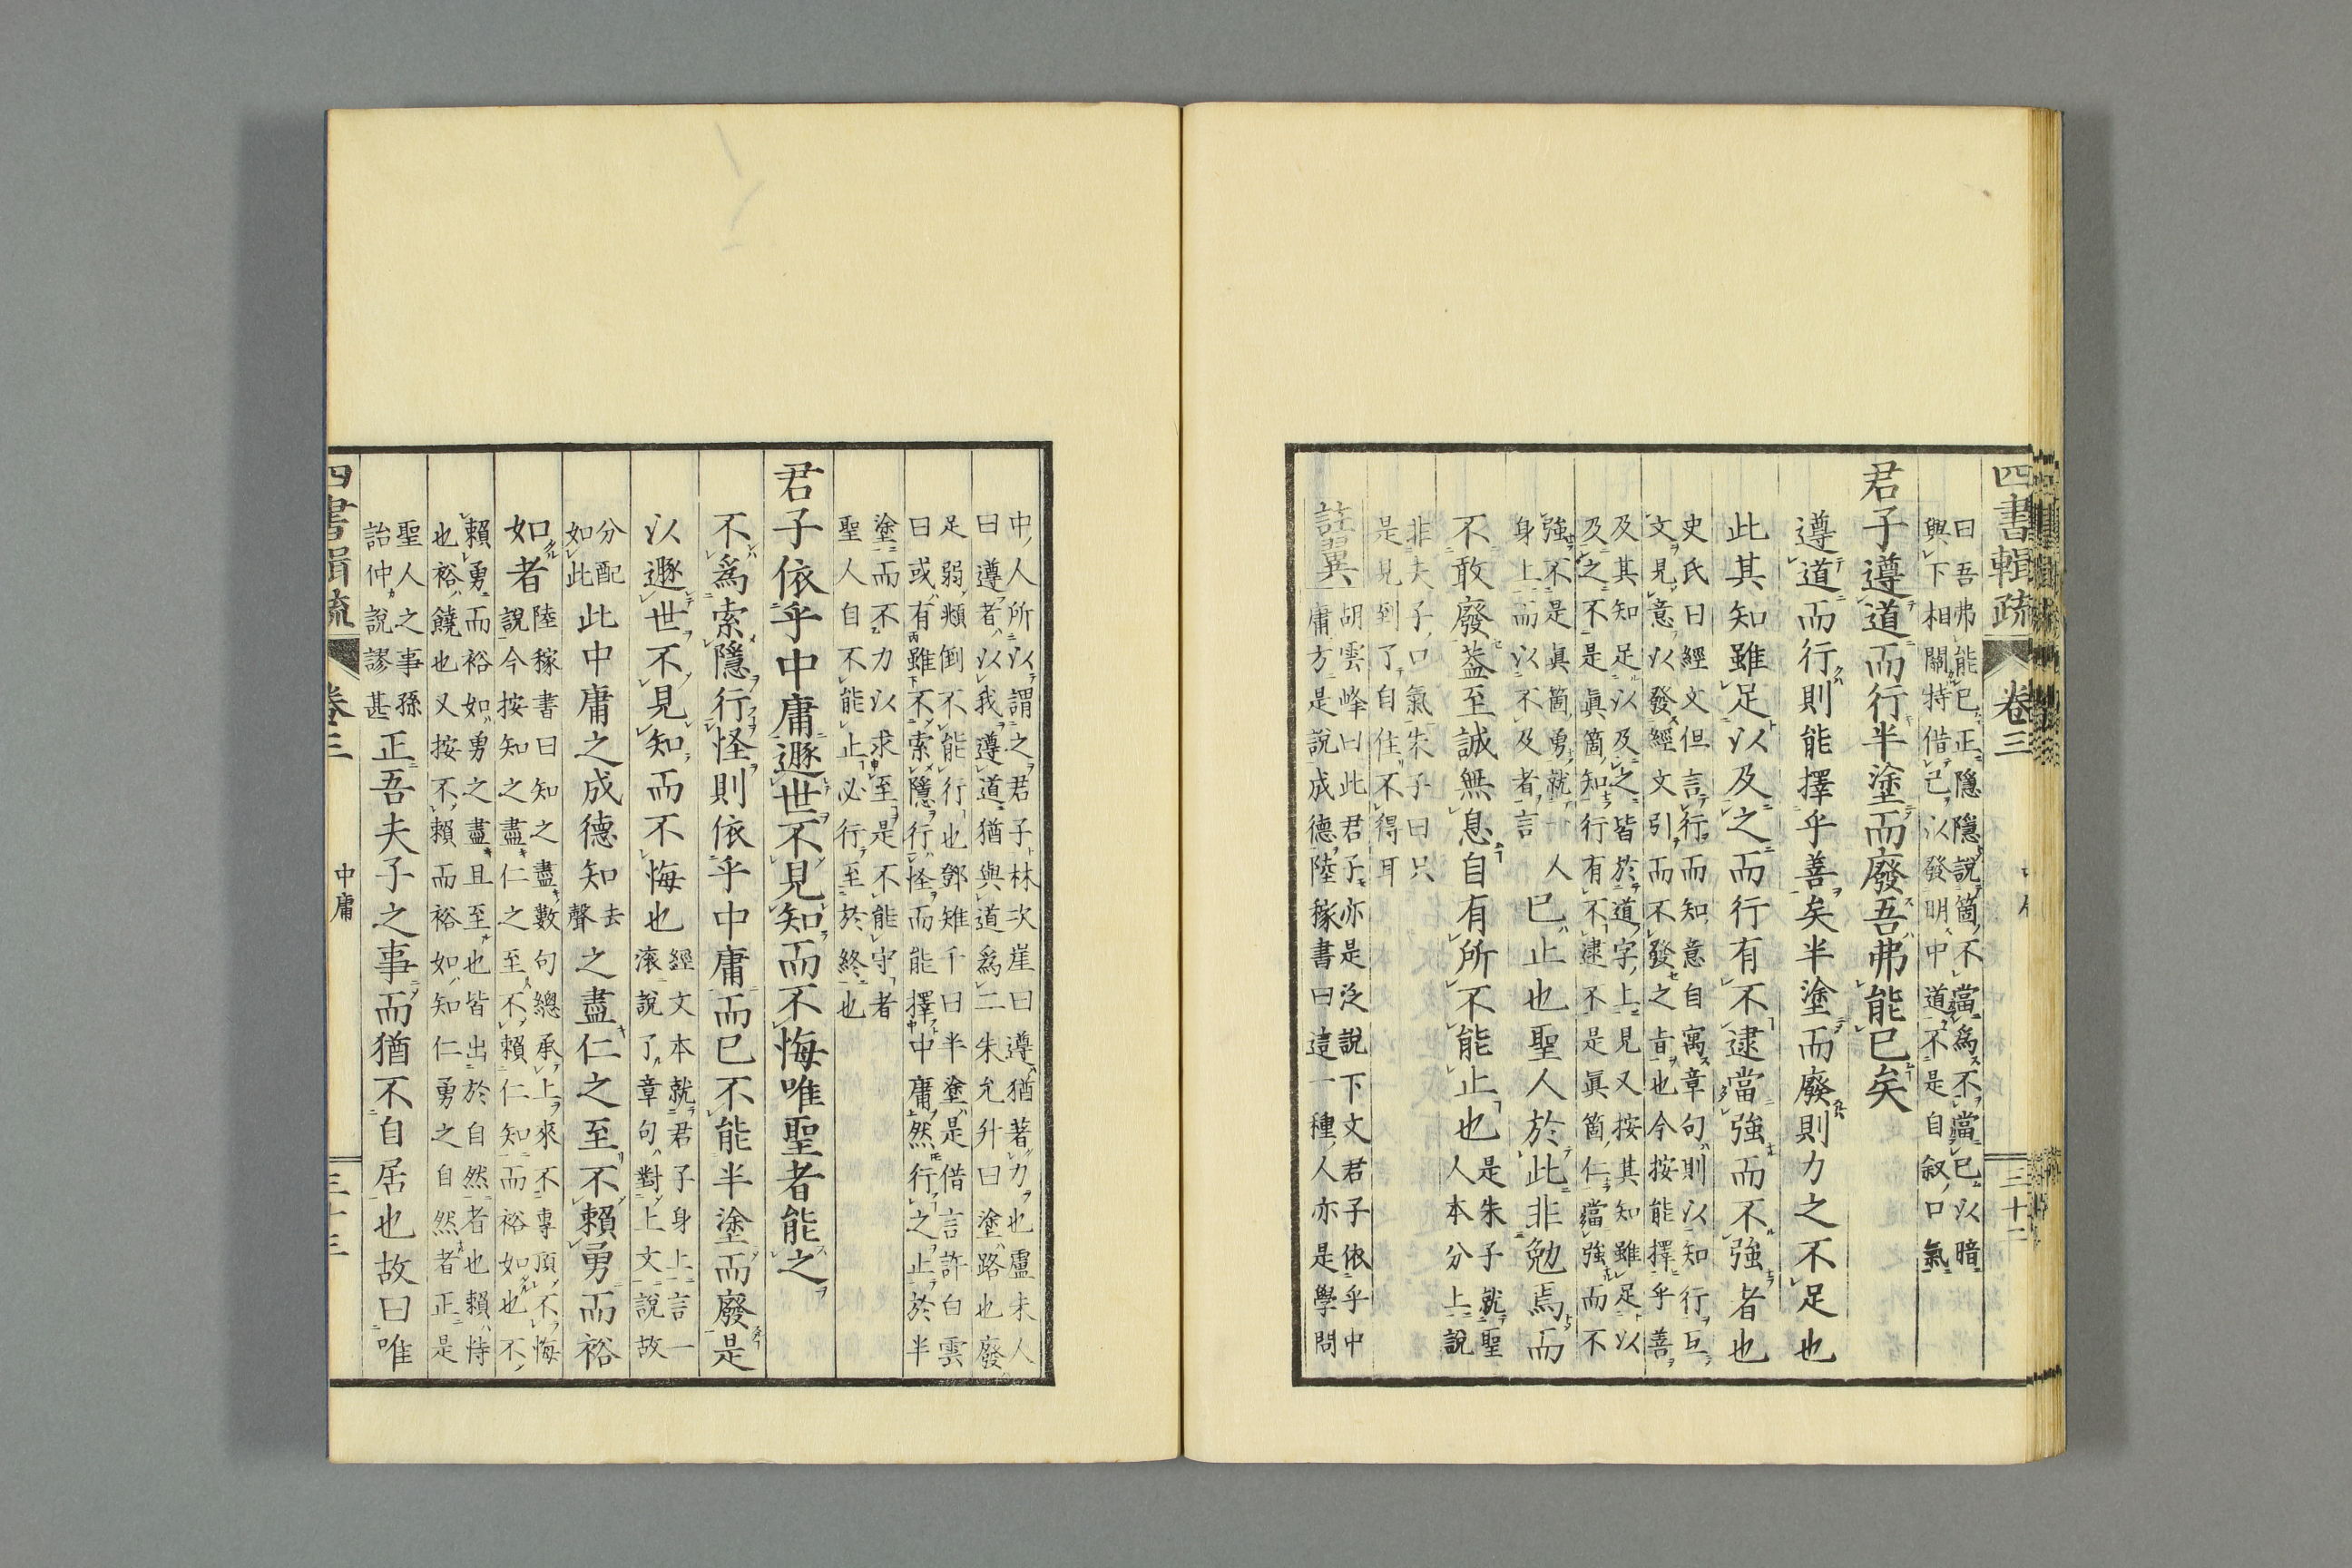 四書輯疏 卷三 三十二
曰吾弗能已正隱隱說箇不當爲不當已以暗
與下相關持借已以發明中道不是自叙口氣
君子遵道而行半塗而廢吾弗能已矣
遵道而行則能擇乎善矣半塗而廢則力之不足也
此其知雖足以及之而行有不逮當強而不強者也
史氏曰經文但言行而知意自寓章句則以知行互
文見意以發經文引而不發之旨也今按能擇乎善
及其知足以及之皆於道字上見又按其知雖足以
及之不是眞箇知行有不逮不是眞箇仁當強而不
強不是眞箇勇就一人
身上而以不及者言
已止也聖人於此非勉焉而
不敢廢葢至誠無息自有所不能止也
是朱子就聖
人本分上說
非夫子口氣朱子曰只
是見到了自住不得耳
註翼
胡雲峰曰此君子亦是泛說下文君子依乎中
庸方是說成德陸稼書曰這一種人亦是學問
中人所以謂之君子林次崖曰遵猶著力也盧未人
曰遵者以我遵道猶與道爲二朱允升曰塗路也廢
足弱頹倒不能行也鄧雉千曰半塗是借言許白雲
曰或有雖不索隱行怪而能擇中庸然行之止於半
塗而不力以求至是不能守者
聖人自不能止必行至於終也
君子依乎中庸遯世不見知而不悔唯聖者能之
不爲索隱行怪則依乎中庸而已不能半塗而廢是
以遯世不見知而不悔也
經文本就君子身上言一
滚說了章句對上文說故
分配
如此
此中庸之成德知
去
聲
之盡仁之至不賴勇而裕
如者
陸稼書曰知之盡數句總承上來不專頂不悔
說今按知之盡仁之至不賴仁知而裕如也不
賴勇而裕如勇之盡且至也皆出於自然者也賴恃
也裕饒也又按不賴而裕如知仁勇之自然者正是
聖人之事孫
詒仲說謬甚
正吾夫子之事而猶不自居也故曰唯
四書輯疏 卷三 中庸 三十三